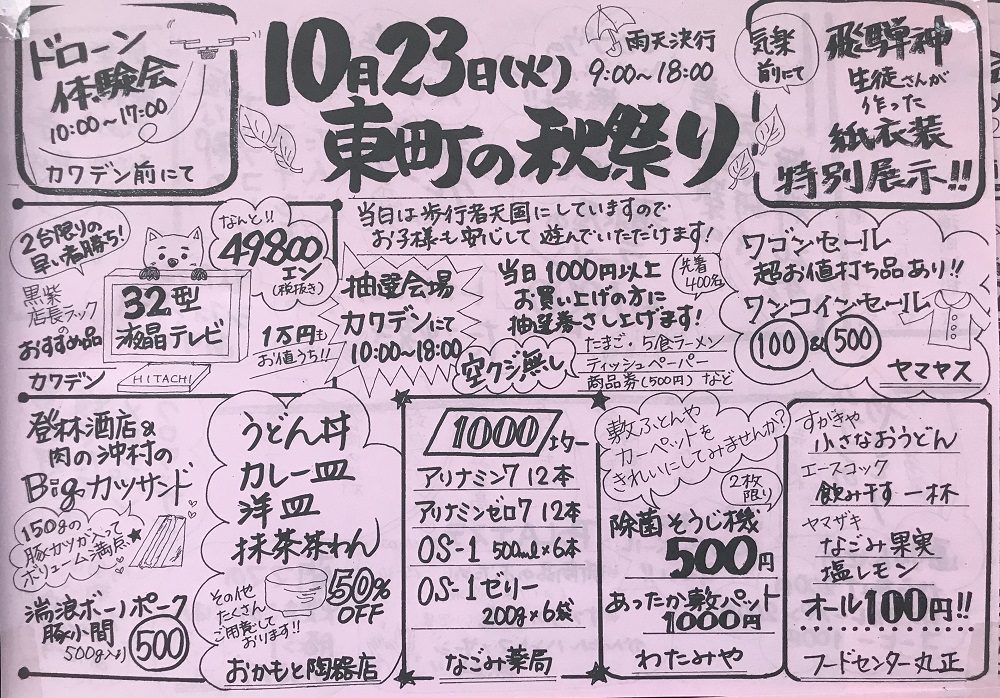 ドローン
体験会
10:00~17:00
カワデン前にて
10月23日(火)
雨天決行
9:00~18:00
東町の秋祭り
気楽
前にて
飛騨神
生徒さんが
作った
紙衣装
特別展示!!
当日は歩行者天国にしていますので
お子様も安心して遊んでいただけます!
2台限りの
早い者勝ち!
なんと!!
49800
エン
(税抜き)
黒柴
店長ラックの
おすすめ品
32型
液晶テレビ
1万円も
お値うち!!
HITACHI
カワデン
抽選会場
カワデンにて
10:00~18:00
当日1000円以上
お買い上げの方に
抽選券さし上げます!
先着
400名
空クジ無し
たまご・5食ラーメン
ティッシュペーパー
商品券(500円)など
ワゴンセール
超お値打ち品あり!!
ワンコインセール
100 & 500
ヤマヤス
登林酒店&
肉の沖村の
Bigカツサンド
150gの
豚カツが入って
ボリューム満点★
ボーノポーク
豚小間
500g入り
500
うどん丼
カレー皿
洋皿
抹茶茶わん
50%
OFF
その他
たくさん
ご用意して
おります!!
おかもと陶器店
1000エター
アリナミン7 12本
アリナミンゼロ7 12本
OS-1 500ml×6本
OS-1ゼリー
200g×6袋
なごみ薬局
敷ふとんや
カーペットを
きれいにしてみませんか?
2枚
限り
除菌そうじ機
500円
あったか敷パット
1000円
わたみや
すがきや
小さなおうどん
エースコック
飲み干す一杯
ヤマザキ
なごみ果実
塩レモン
オール100円!!
フードセンター丸正